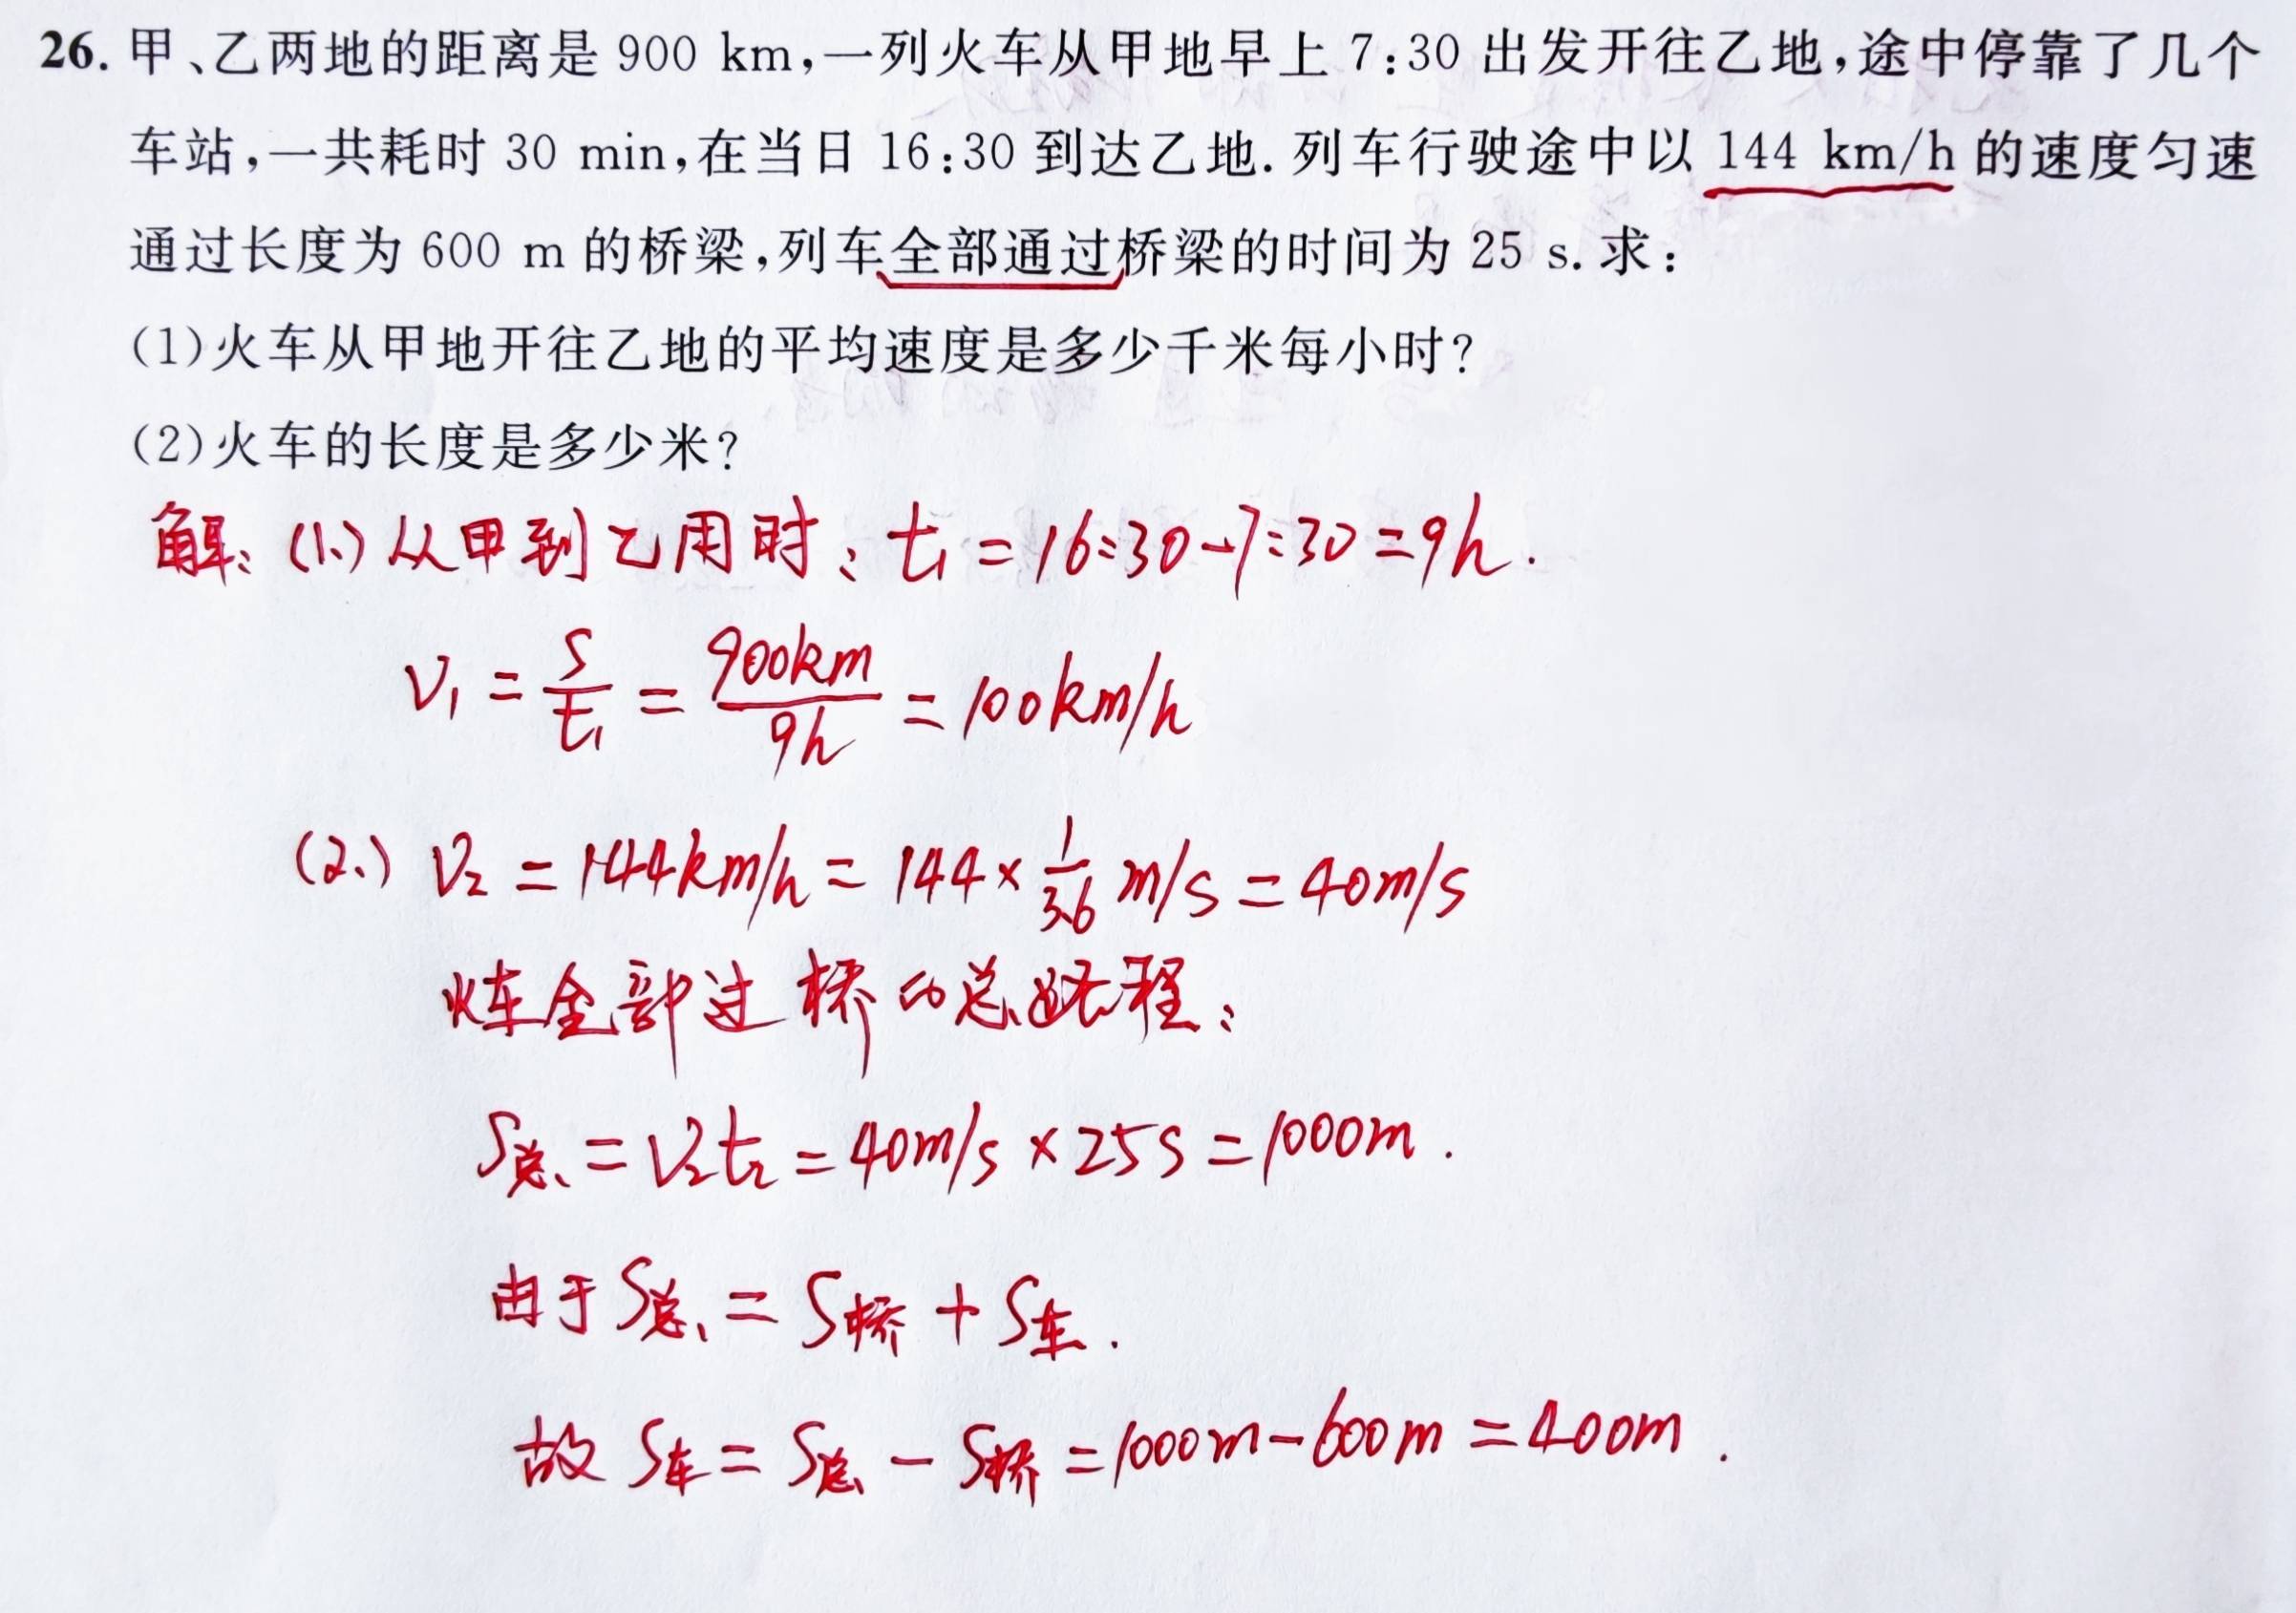 26. 甲、乙两地的距离是 900 km,一列火车从甲地早上 7:30 出发开往乙地,途中停靠了几个
车站,一共耗时 30 min,在当日 16:30 到达乙地. 列车行驶途中以 144 km/h 的速度匀速
通过长度为 600 m 的桥梁,列车全部通过桥梁的时间为 25 s. 求:
(1)火车从甲地开往乙地的平均速度是多少千米每小时?
(2)火车的长度是多少米?
解: (1.) 从甲到乙用时: t₁ = 16:30-7:30 = 9h.
V₁ = S/t₁ = 900km/9h = 100km/h
(2.) V₂ = 144km/h = 144 × 1/3.6 m/s = 40m/s
火车全部过桥的总路程:
S总 = V₂t₂ = 40m/s × 25s = 1000m.
由于 S总 = S桥 + S车.
故 S车 = S总 - S桥 = 1000m - 600m = 400m.